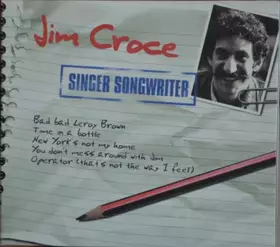 Jim Croce
SINGER SONGWRITER
Bad bad Leroy Brown
Time in a bottle
New York's not my home
You don't mess around with Jim
Operator (that's not the way I feel)